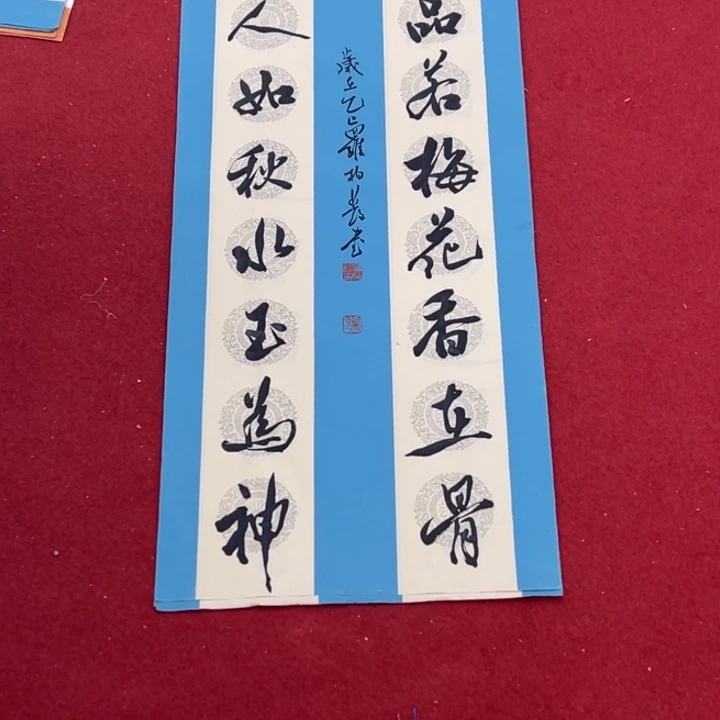 品若梅花香在骨
人如秋水玉為神
歲在乙巳羅柏